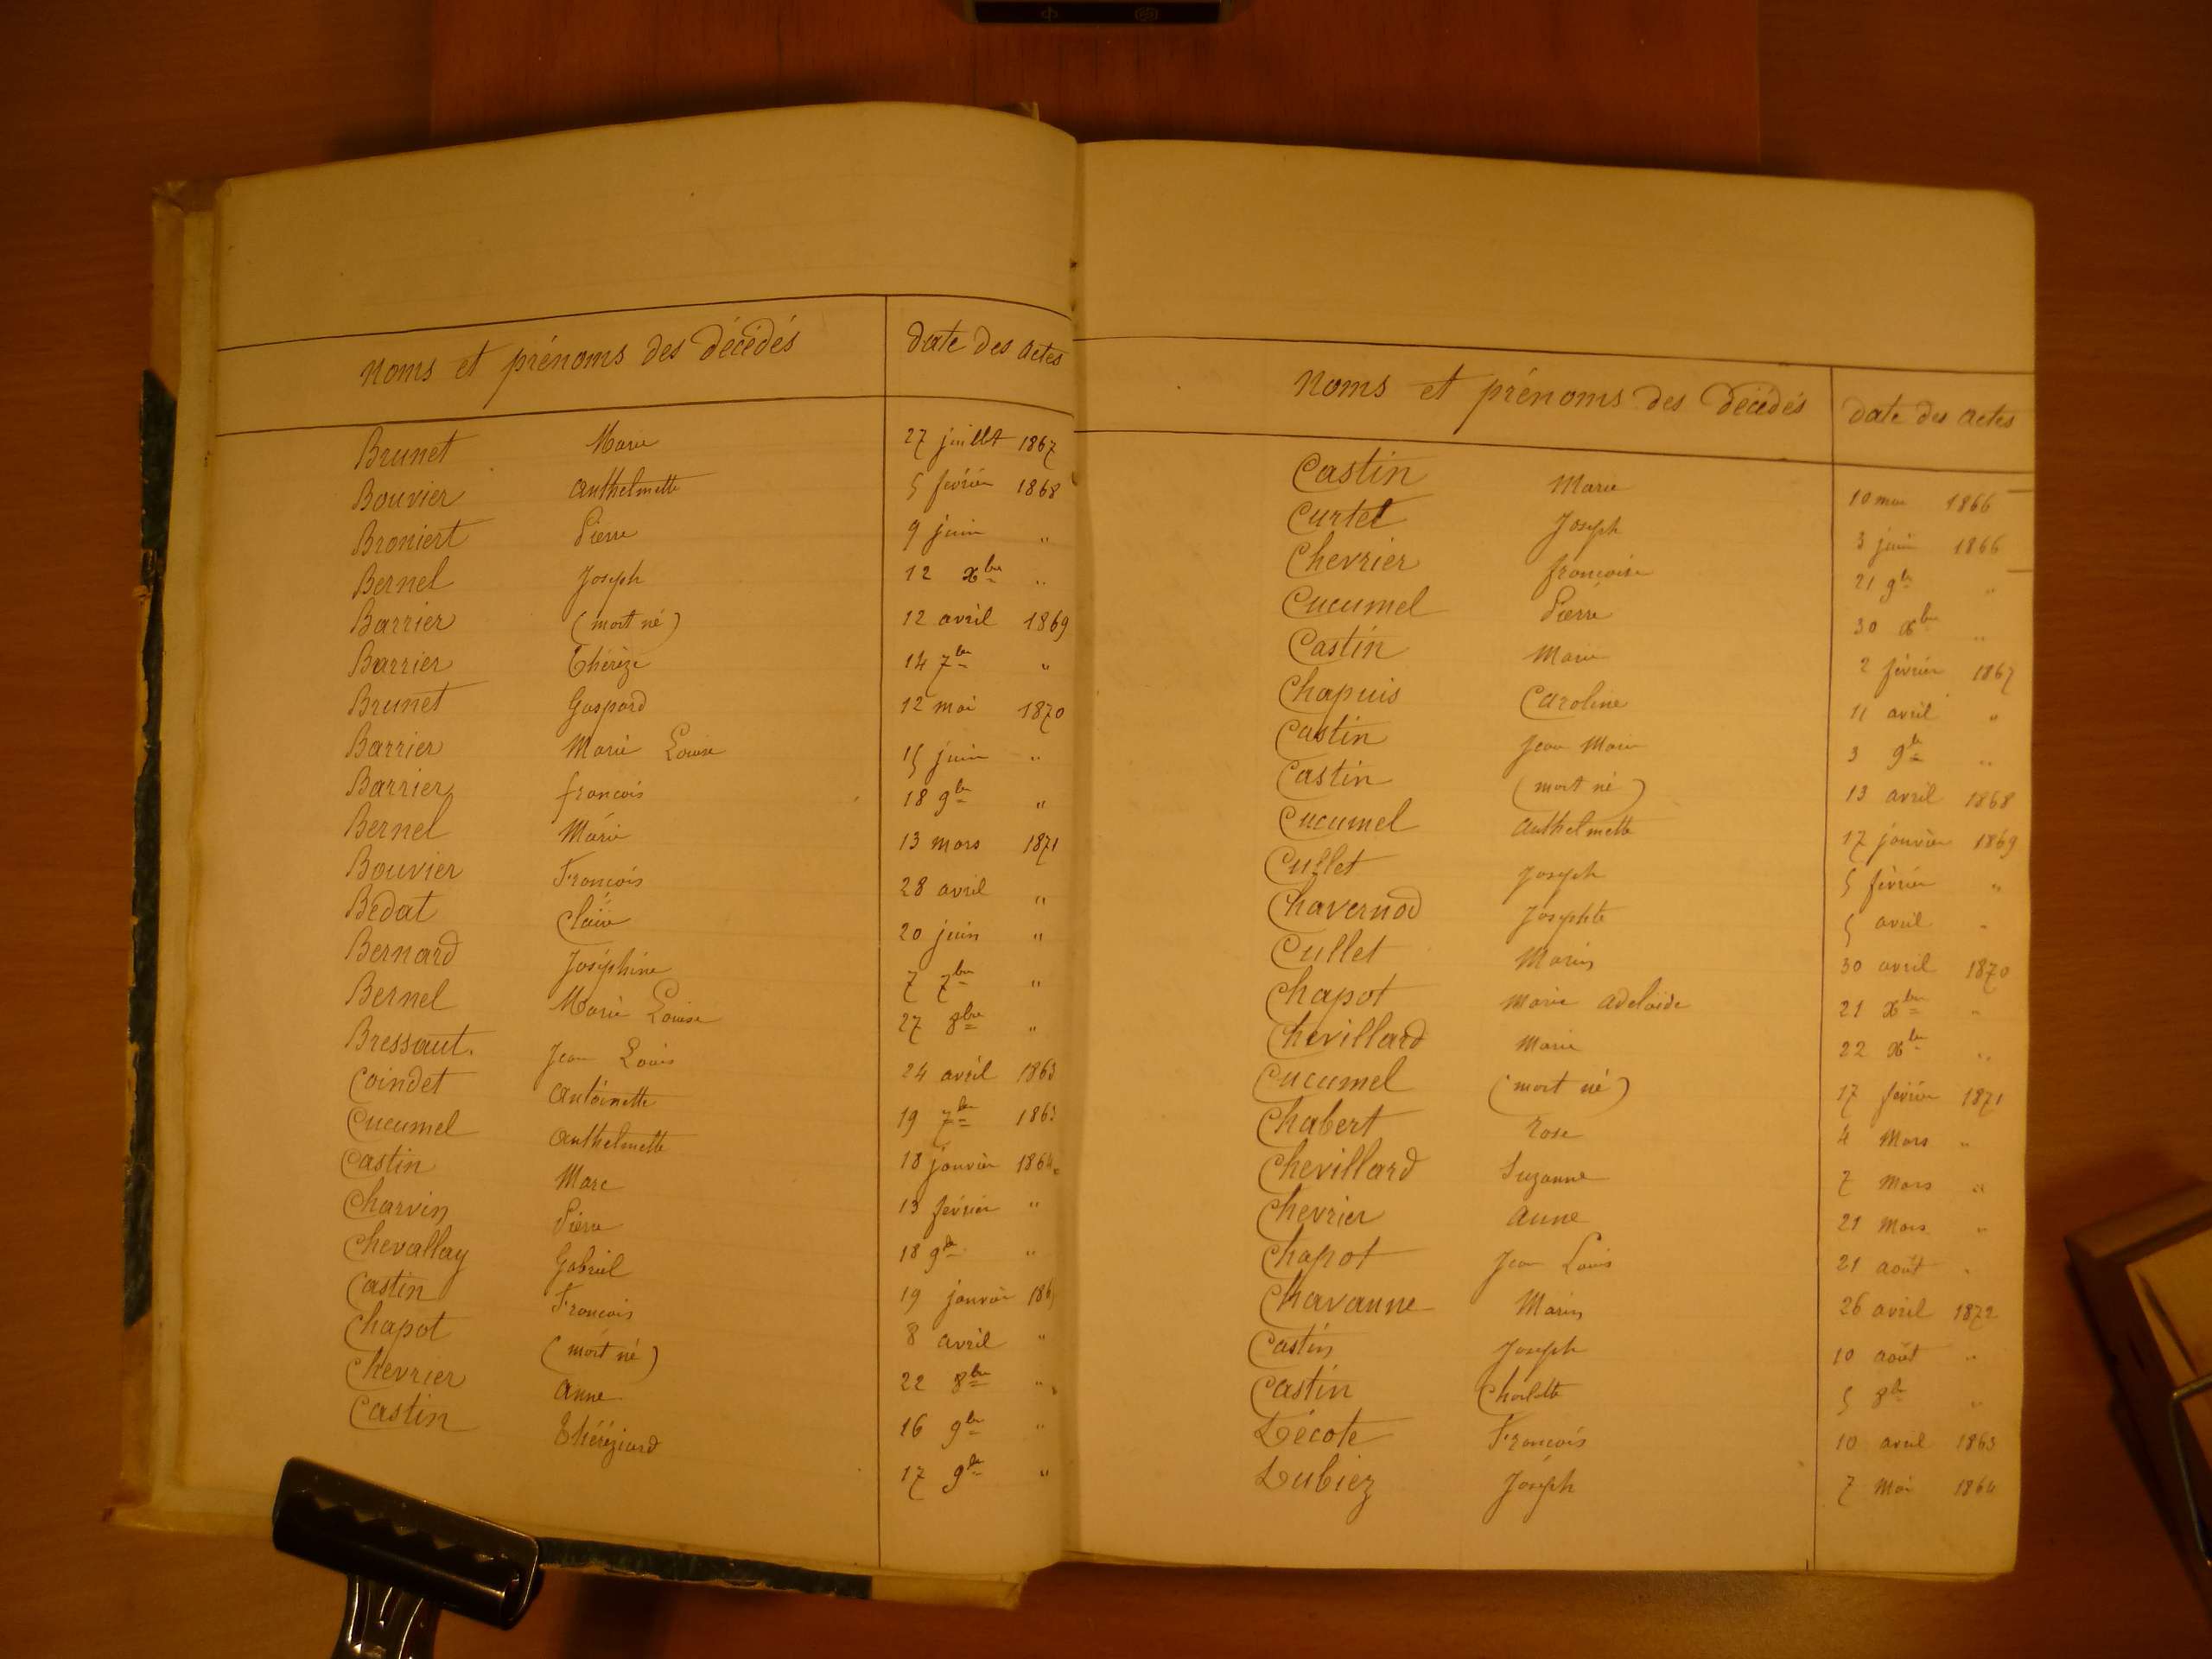 Noms et prénoms des décédés date des actes
Brunet Marie 27 juillet 1867
Bouvier Anthelmette 5 février 1868
Broniert Pierre 9 juin "
Bernel Joseph 12 xbre "
Barrier (mort né) 12 avril 1869
Barrier Thérèze 14 7bre "
Brunet Gaspard 12 mai 1870
Barrier Marie Louise 15 juin "
Barrier françois 18 9bre "
Bernel Marie 13 mars 1871
Bouvier François 28 avril "
Bedat Claire 20 juin "
Bernard Joséphine 7 7bre "
Bernel Marie Louise 27 8bre "
Bressaut. Jean Louis 24 avril 1863
Coindet Antoinette 19 7bre 1863
Cucumel Anthelmette 18 janvier 1864
Castin Marc 13 février "
Charvin Pierre 18 9bre "
Chevallay Gabriel 19 janvier 186
Castin François 8 avril "
Chapot (mort né) 22 8bre "
Chevrier Anne 16 9bre "
Castin 17 9bre "
Noms et prénoms des décédés date des actes
Castin Marie 10 mai 1866
Curtet Joseph 3 juin 1866
Chevrier françoise 21 9bre "
Cucumel Pierre 30 xbre "
Castin Marie 2 février 1867
Chapuis Caroline 11 avril "
Castin Jean Marie 3 9bre "
Castin (mort né) 13 avril 1868
Cucumel Anthelmette 17 janvier 1869
Cullet Joseph 5 février "
Chavernod Josephte 5 avril "
Cullet Marin 30 avril 1870
Chapot Marie Adelaide 21 xbre "
Chevillard Marie 22 xbre "
Cucumel (mort né) 17 février 1871
Chabert Rose 4 Mars "
Chevillard Suzanne 7 Mars "
Chevrier Anne 21 Mars "
Chapot Jean Louis 21 août "
Chavanne Marin 26 avril 1872
Castin Joseph 10 août "
Castin Charlotte 5 8bre "
Décote François 10 avril 1863
Dubiez Joseph 7 Mai 1864